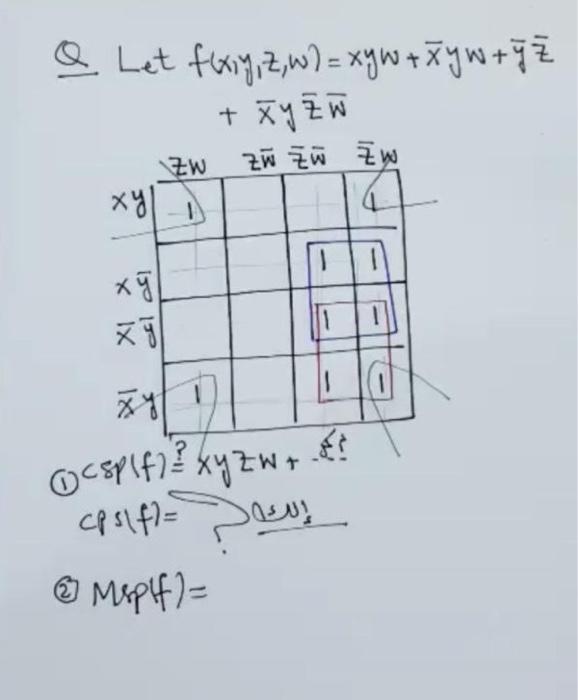 Q Let f(x,y,z,w) = xyw + x̄yw + ȳz̄
+ x̄yz̄w̄
zw zw̄ z̄w̄ z̄w
xy 1 1
xȳ 1 1
x̄ȳ 1 1
x̄y 1 1 1
① csp(f) ?= xyzw + ..?
cps(f) = ?
② Msp(f) =